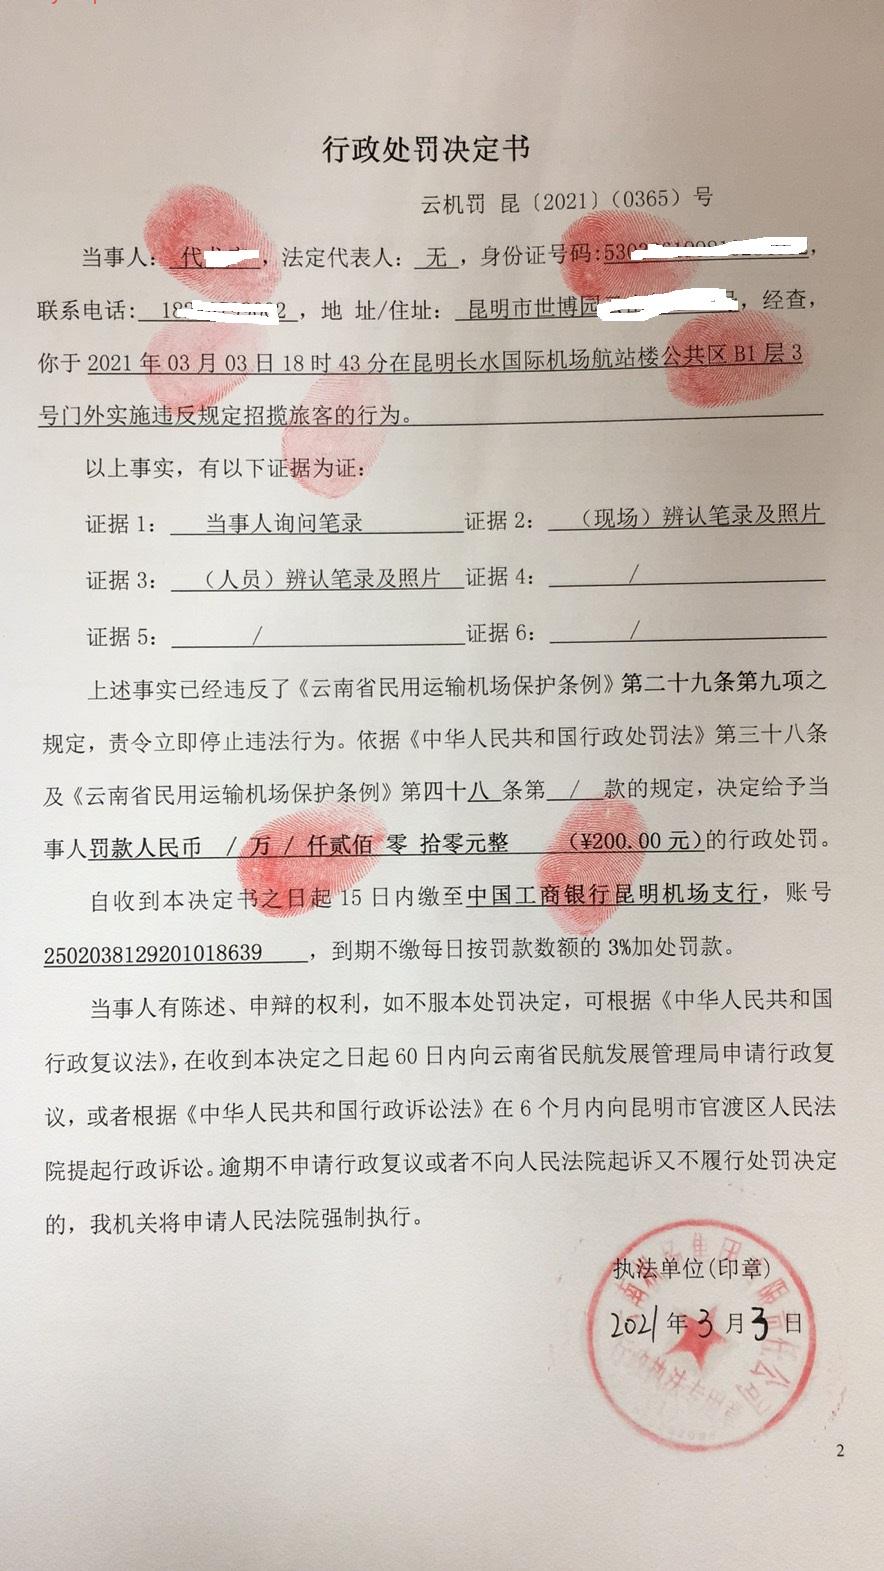 行政处罚决定书
云机罚 昆〔2021〕（0365）号
当事人： 代 ，法定代表人：无，身份证号码:530 ，
联系电话： 18 2 ，地 址/住址：昆明市世博园 号，经查，
你于 2021 年 03 月 03 日 18 时 43 分在昆明长水国际机场航站楼公共区 B1 层 3
号门外实施违反规定招揽旅客的行为。
以上事实，有以下证据为证：
证据 1： 当事人询问笔录 证据 2： （现场）辨认笔录及照片
证据 3： （人员）辨认笔录及照片 证据 4： /
证据 5： / 证据 6： /
上述事实已经违反了《云南省民用运输机场保护条例》第二十九条第九项之
规定，责令立即停止违法行为。依据《中华人民共和国行政处罚法》第三十八条
及《云南省民用运输机场保护条例》第四十八 条第 / 款的规定，决定给予当
事人罚款人民币 / 万 / 仟贰佰 零 拾零元整 （¥200.00 元）的行政处罚。
自收到本决定书之日起 15 日内缴至中国工商银行昆明机场支行，账号
2502038129201018639 ，到期不缴每日按罚款数额的 3%加处罚款。
当事人有陈述、申辩的权利，如不服本处罚决定，可根据《中华人民共和国
行政复议法》，在收到本决定之日起 60 日内向云南省民航发展管理局申请行政复
议，或者根据《中华人民共和国行政诉讼法》在 6 个月内向昆明市官渡区人民法
院提起行政诉讼。逾期不申请行政复议或者不向人民法院起诉又不履行处罚决定
的，我机关将申请人民法院强制执行。
执法单位(印章)
2021 年 3 月 3 日
2